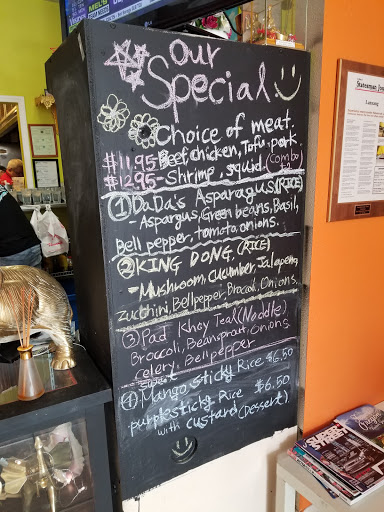 MEL'S
Our
Special
Choice of meat.
$11.95 Beef, Chicken, Tofu, pork
$12.95 - Shrimp, squid. (Combo +2
① DaDa's Asparagus (RICE)
- Aspargus, Green beans, Basil,
Bell pepper, tomato, onions.
② KING DONG. (RICE)
- Mushroom, cucumber, Jalapeno,
zucchini, Bellpepper Broccoli, Onions.
③ Pad Khoy Teal (Noodle)
Broccoli, Beansprout, Onions.
Celery, Bellpepper
Sweet
④ Mango sticky Rice $6.50
purple sticky Rice $6.50
with custard (Dessert)
Statesman